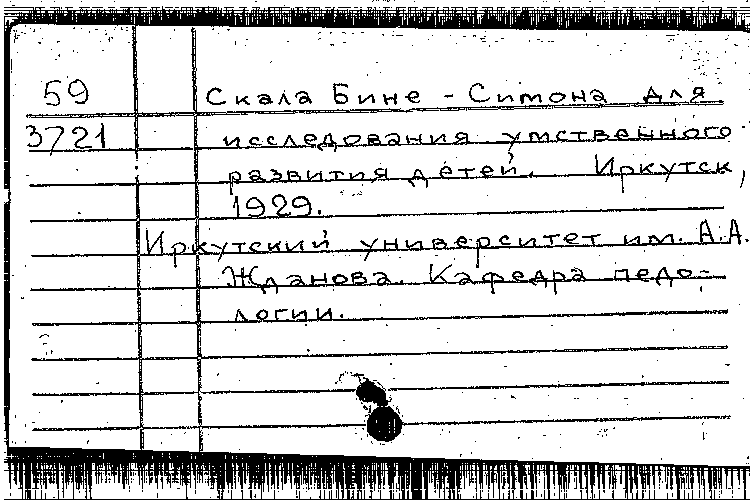 59 Скала Бине - Симона для
3721 исследования умственного
развития детей. Иркутск,
1929.
Иркутский университет им. А.А.
Жданова. Кафедра педо-
логии.